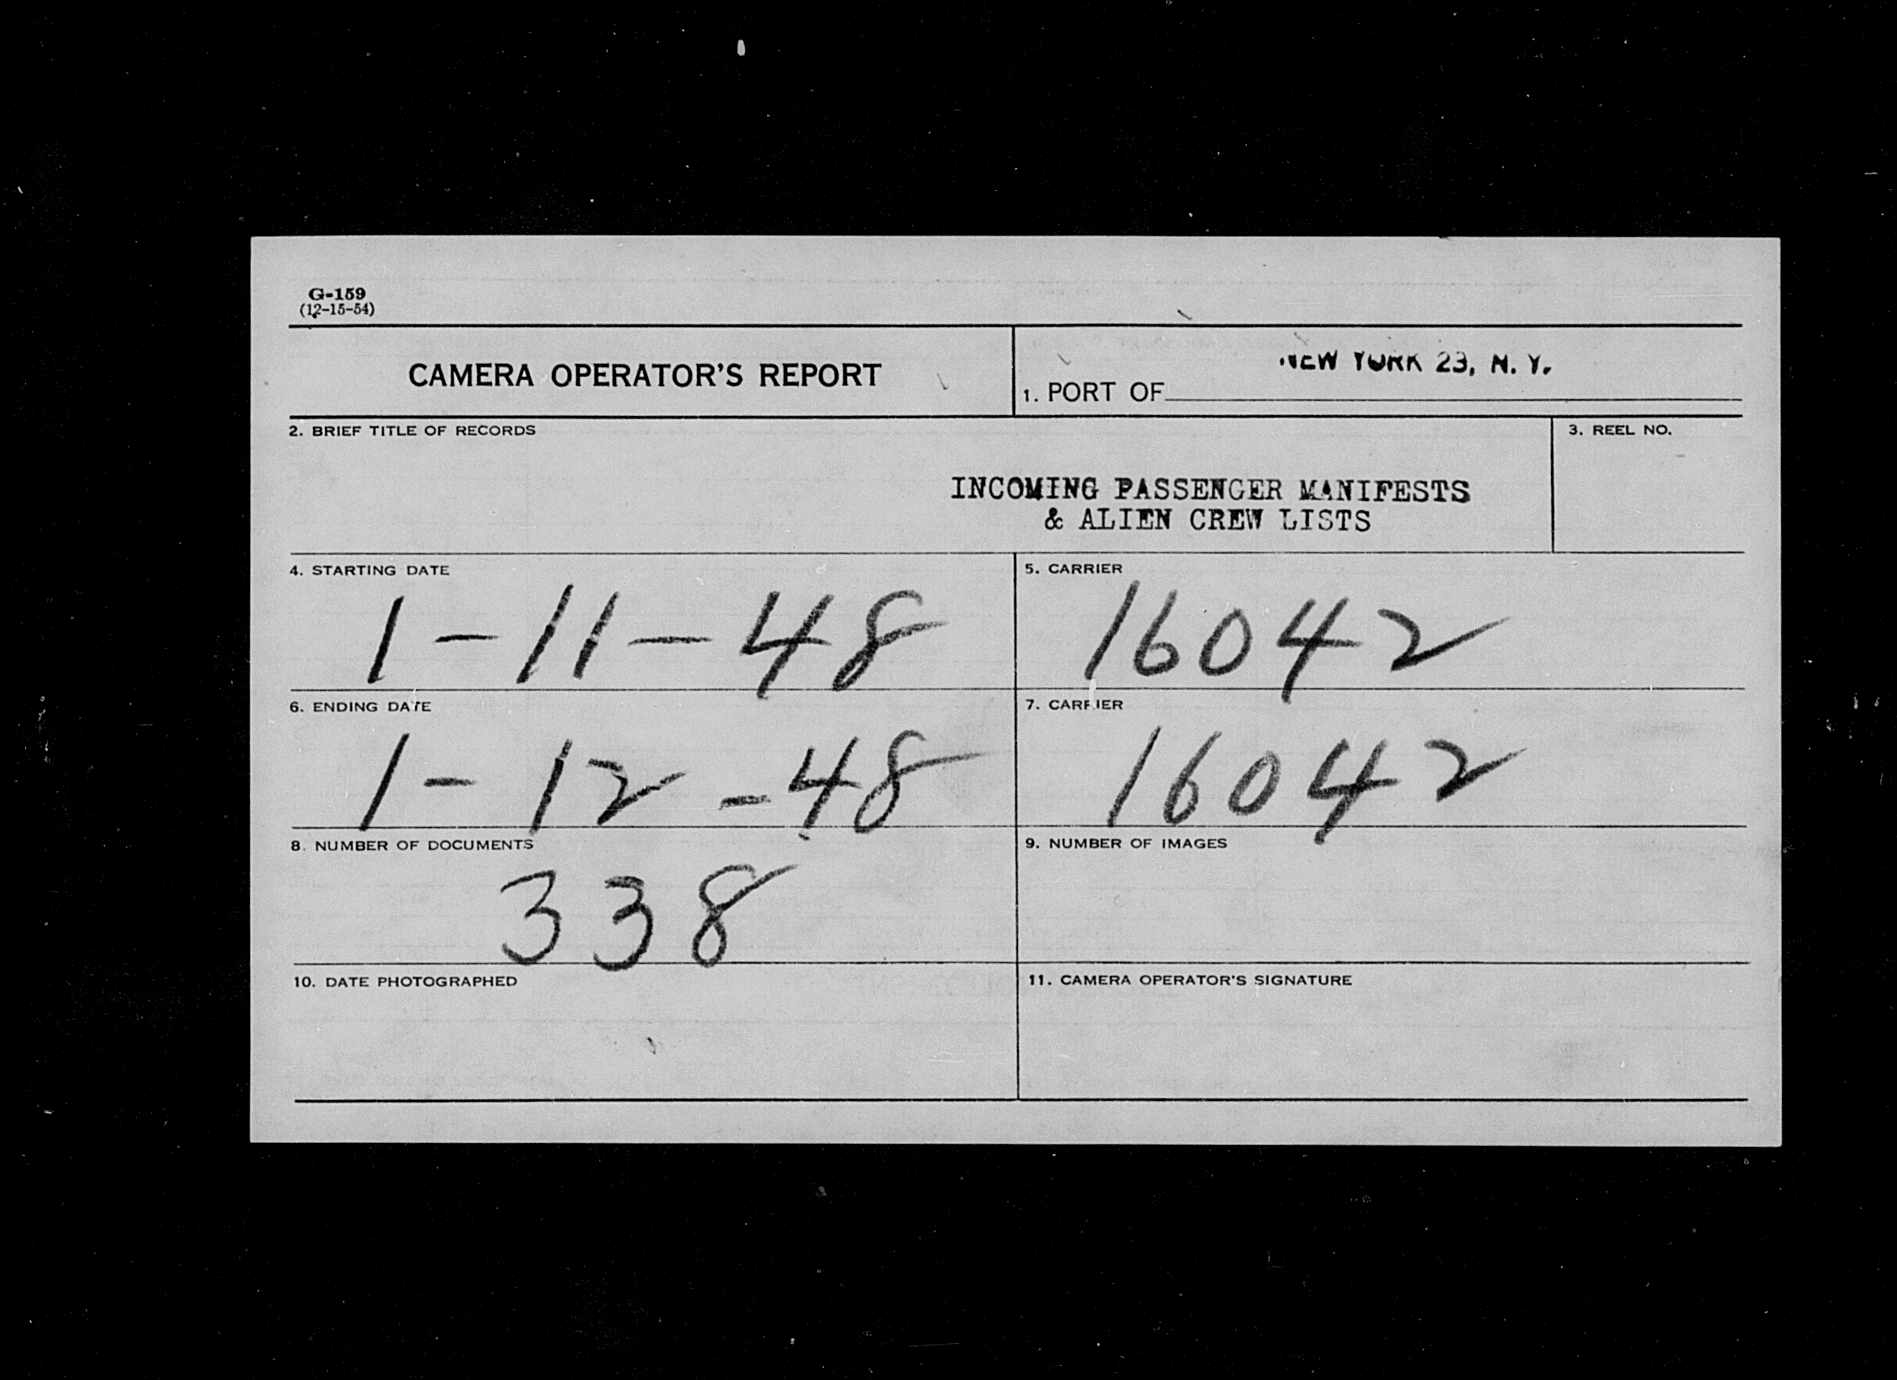 G-159
(12-15-54)
CAMERA OPERATOR'S REPORT
1. PORT OF NEW YORK 23, N. Y.
2. BRIEF TITLE OF RECORDS
3. REEL NO.
INCOMING PASSENGER MANIFESTS
& ALIEN CREW LISTS
4. STARTING DATE
1-11-48
5. CARRIER
16042
6. ENDING DATE
1-12-48
7. CARRIER
16042
8. NUMBER OF DOCUMENTS
338
9. NUMBER OF IMAGES
10. DATE PHOTOGRAPHED
11. CAMERA OPERATOR'S SIGNATURE